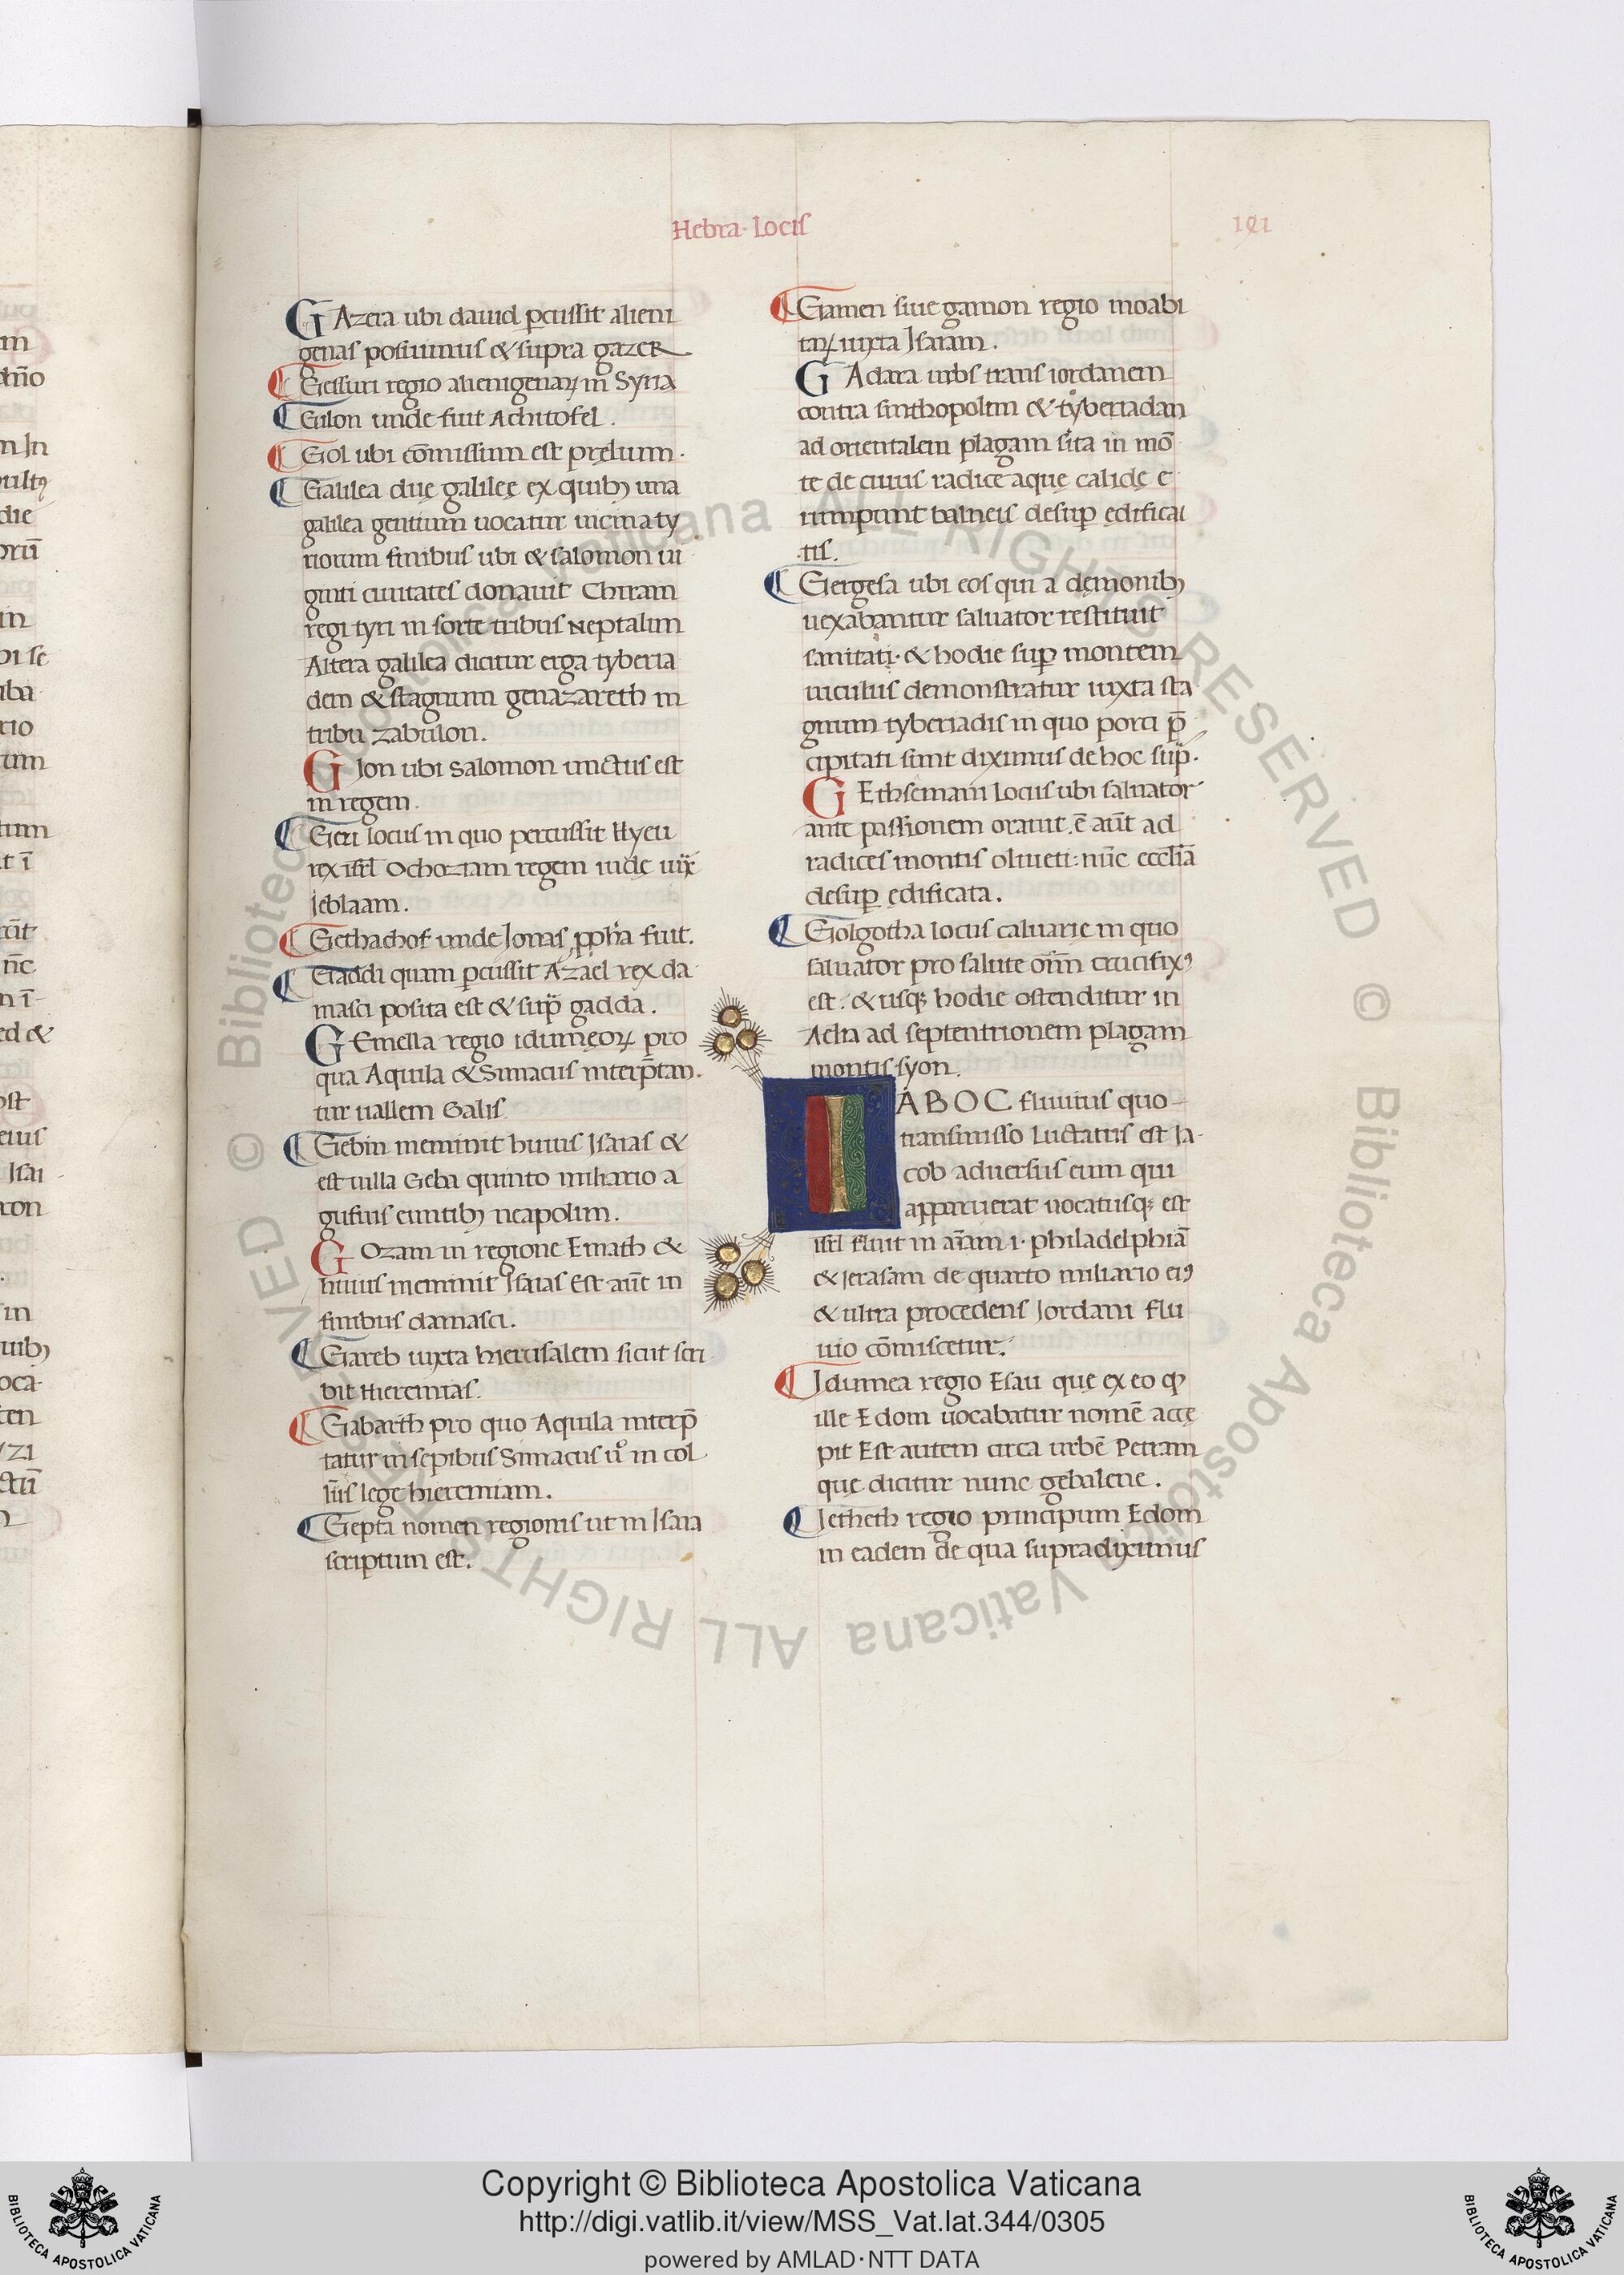 Hebra· Locis
GAzera ubi dauid ꝑcussit alieni
genas posuimus & supra gazer
Gessuri regio alienigenaꝝ in Syria
Gilon unde fuit Achitofel.
Gol ubi cōmissum est pręlium.
Galilea duę galileę ex quibꝫ una
galilea gentium uocatur uicina ty
riorum finibus ubi & salomon ui
ginti ciuitates donauit Chiram
regi tyri in sorte tribus Neptalim
Altera galilea dicitur erga tyberia
dem & stagnum genazareth in
tribu zabulon.
GIon ubi salomon unctus est
in regem.
Geri locus in quo percussit Hyeu
rex isrl̄ Ochoziam regem iudę iux̄
Jeblaam.
Gethachof unde Jonas ꝓpha fuit.
Gaddi quam ꝑcussit Azael rex da
masci posita est & suꝑ gadda.
GEmella regio idumęoꝝ pro
qua Aquila & Simacus interp̄tan
tur uallem Salis
Gebin meminit huius Isaias &
est uilla Geba quinto miliario a
gufnis euntibꝫ neapolim.
GOzam in regione Emath &
huius meminit Isaias Est aūt in
finibus damasci.
Gareb iuxta hierusalem sicut scri
bit Hieremias.
Gabarth pro quo Aquila interp̄
tatur in sepibus Simacus ů in col
lib̄is lege hieremiam.
Gepta nomen regionis ut in Isaia
scriptum est.
Gamen siue gamon regio moabi
taꝝ iuxta Isaiam.
GAdara urbs trans iordanem
contra sinthopolim & tyberiadan
ad orientalem plagam sita in mō
te de cuius radice aquę calidę e
rumpunt balneis desuꝑ ędificai
tis.
Gergesa ubi eos qui a dęmonibꝫ
uexabantur saluator restituit
sanitati. & hodie suꝑ montem
uiculus demonstratur iuxta sta
gnum tyberiadis in quo porci p̄
cipitati sunt diximus de hoc suꝑ.
GEthsemani locus ubi saluator
ante passionem orauit. ē aūt ad
radices montis oliueti: nūc ecclīa
desuꝑ ędificata.
Golgotha locus caluarię in quo
saluator pro salute om̄m crucifixꝰ
est. & usqꝫ hodie ostenditur in
Aelia ad septentrionem plagam
montis syon.
IABOC fluuius quo
transmisso luctatus est Ja
cob aduersus eum qui
apparuerat uocatusqꝫ est
isrl̄ fluit in am̄am i. philadelphiā
& Jerasam de quarto miliario eiꝰ
& ultra procedens Jordani flu
uio cōmiscetur.
Idumea regio Esau quę ex eo ꝙ
ille Edom uocabatur nomē accę
pit Est autem circa urbē Petram
quę dicitur nunc gebalene.
Jetheth regio principum Edom
in eadem de qua supradiximus
© Biblioteca Apostolica Vaticana ALL RIGHTS RESERVED
© Biblioteca Apostolica Vaticana ALL RIGHTS RESERVED
Copyright © Biblioteca Apostolica Vaticana
http://digi.vatlib.it/view/MSS_Vat.lat.344/0305
powered by AMLAD·NTT DATA
BIBLIOTECA APOSTOLICA VATICANA
BIBLIOTECA APOSTOLICA VATICANA